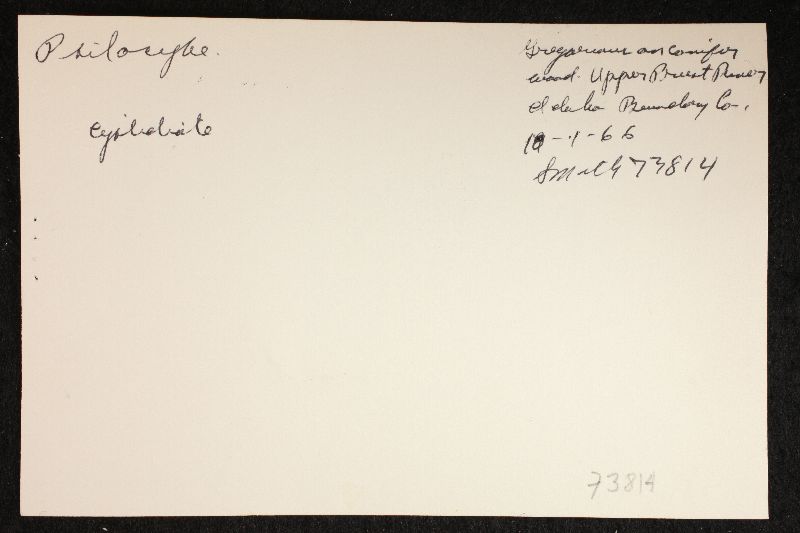 Psilocybe.
cystidiate
Gregarious on conifer
wood. Upper Priest River
Idaho Boundary Co.
10-1-66
Smith 73814
73814